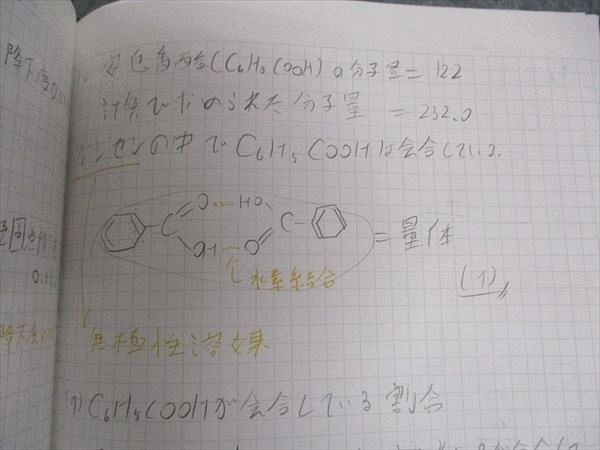 降下度の
安息香酸(C6H5COOH)の分子量=122
計算で求められた分子量 =232.0
ベンゼンの中でC6H5COOHは会合している.
C O HO C
OH O
=量体
水素結合
(イ)
凝固点
無極性溶媒
降下度
(ウ)C6H5COOHが会合している割合